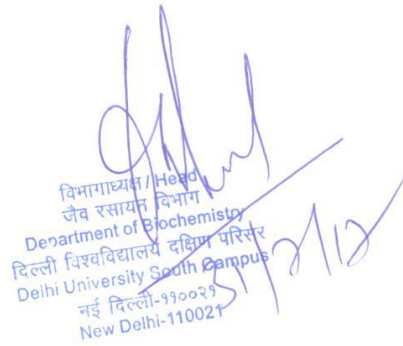 विभागाध्यक्ष / Head
जैव रसायन विभाग
Department of Biochemistry
दिल्ली विश्वविद्यालय दक्षिण परिसर
Delhi University South Campus
नई दिल्ली-११००२१
New Delhi-110021